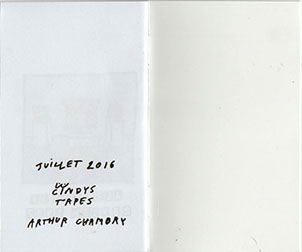 JUILLET 2016
CINDYS
TAPES
ARTHUR CHAMBRY